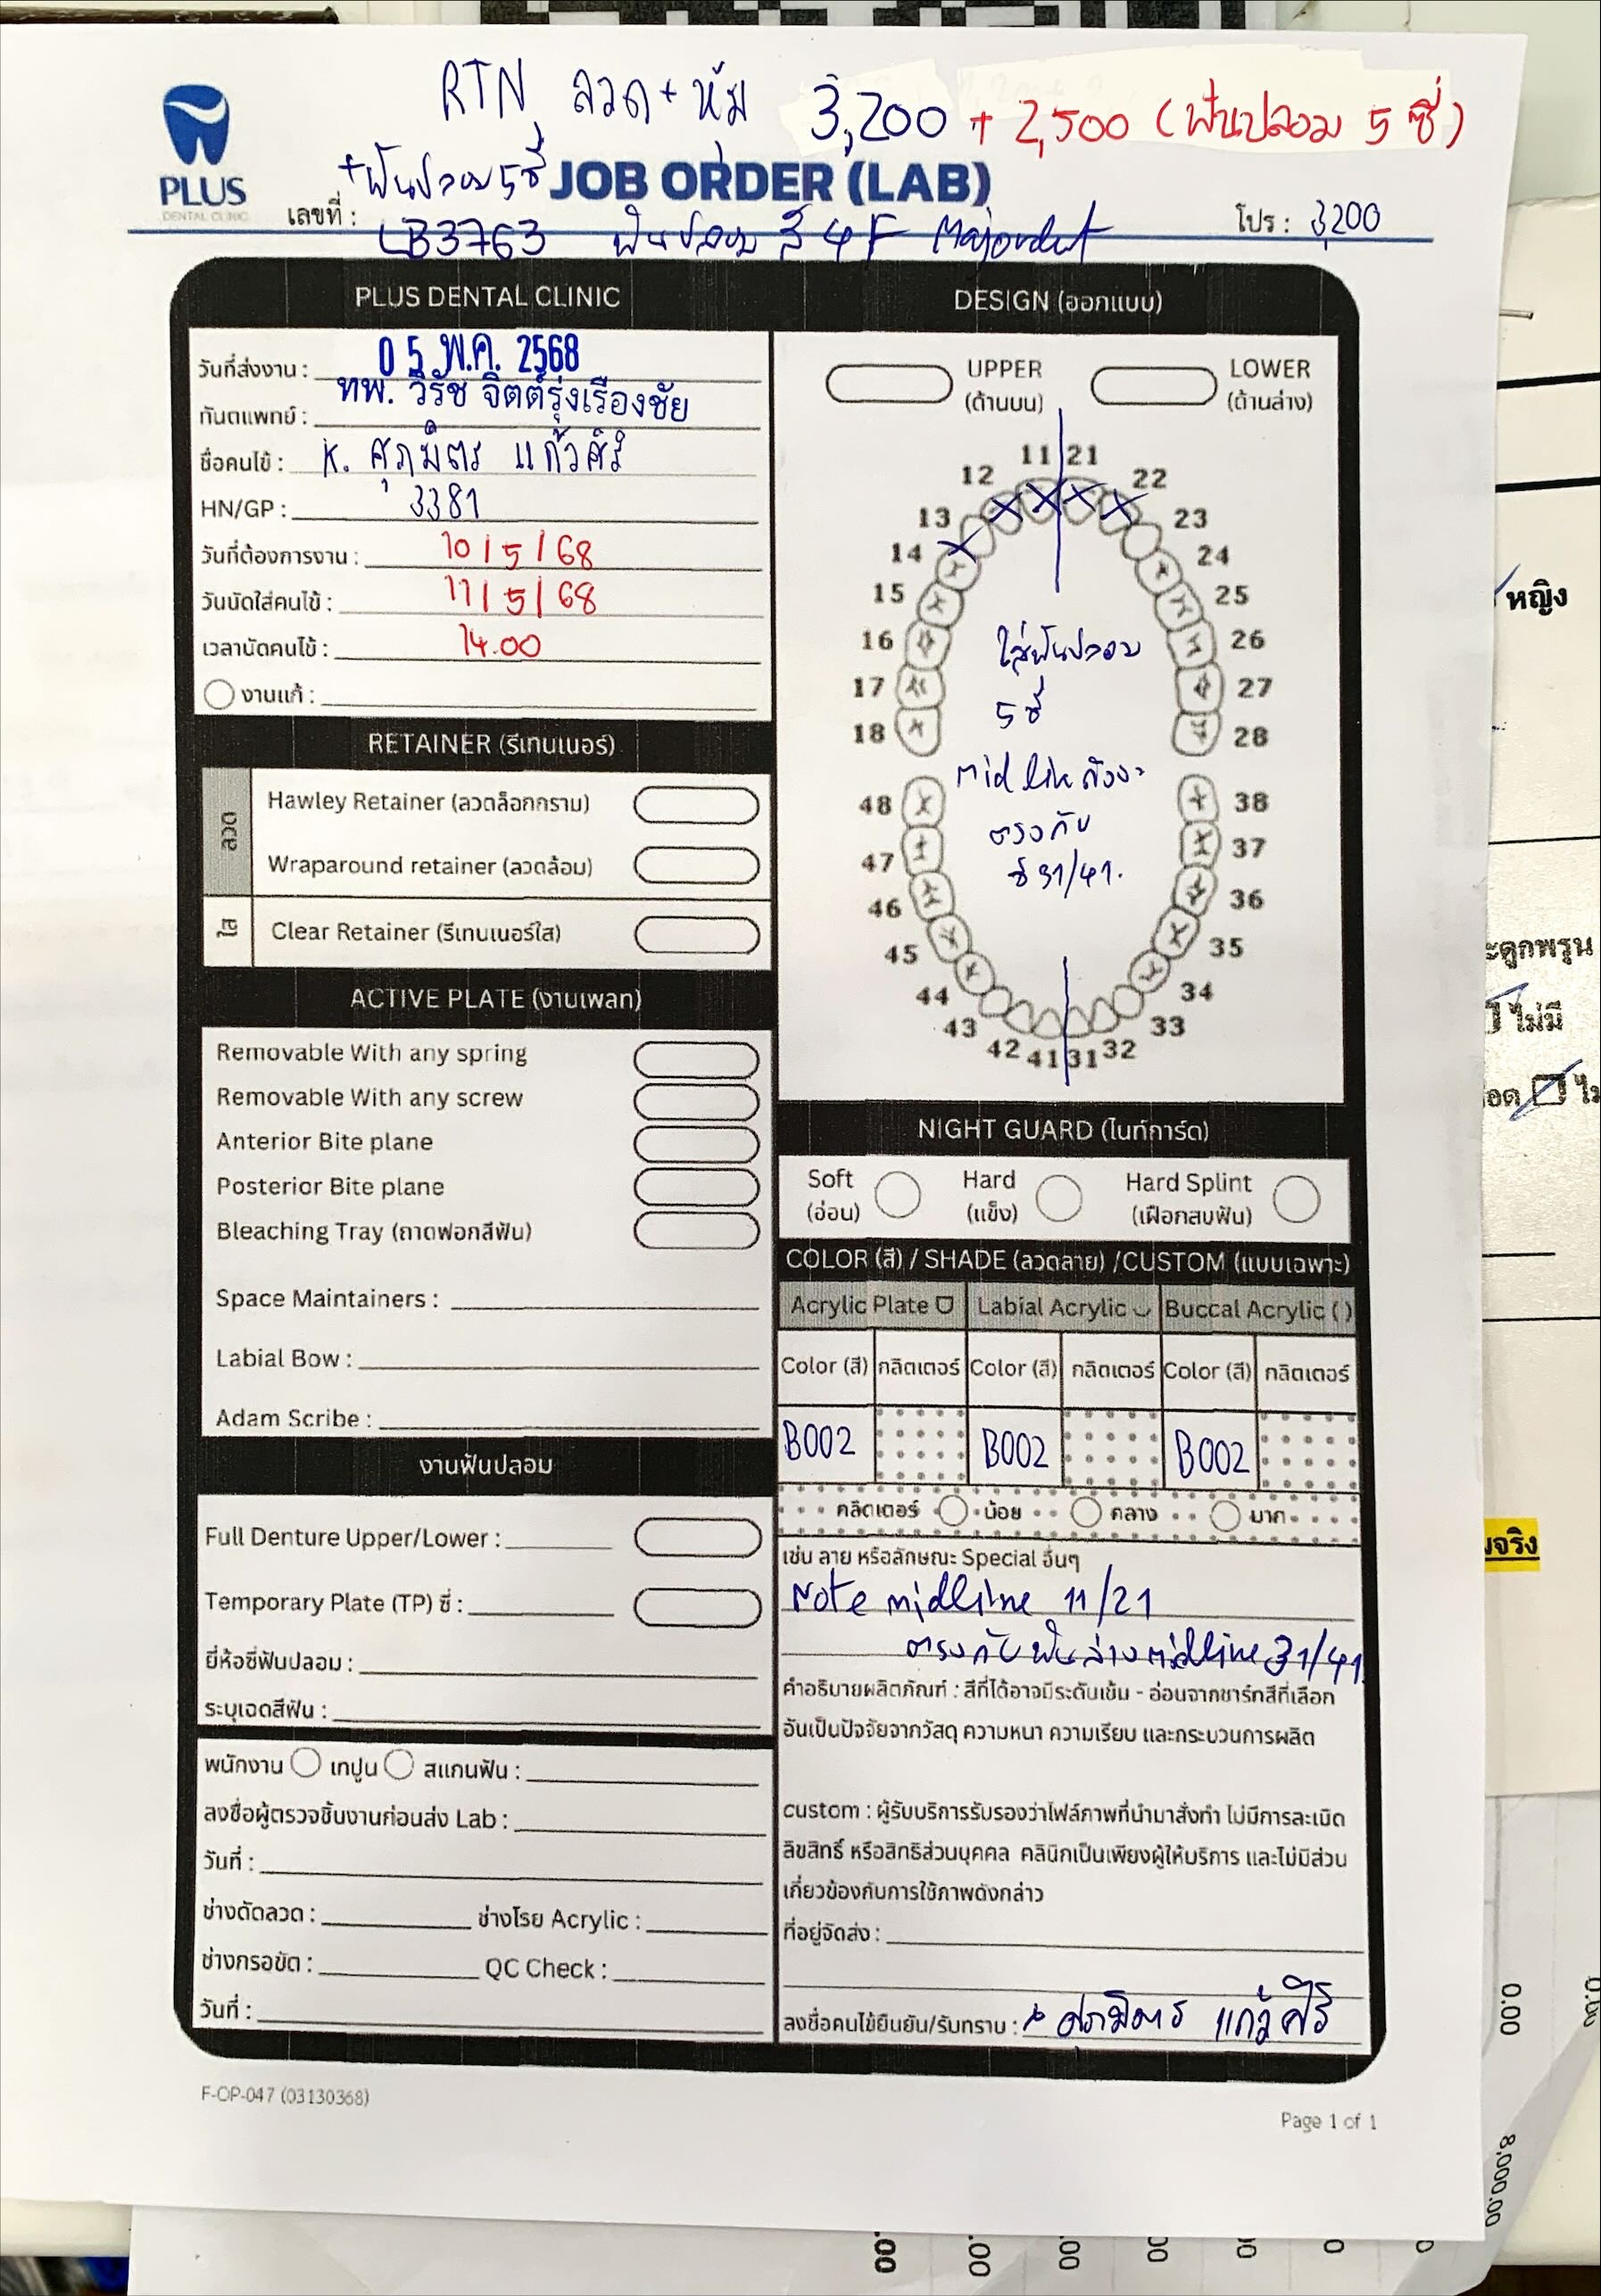 RTN ลวด + หุ้ม 3,200 + 2,500 (ฟันปลอม 5 ซี่)
+ ฟันปลอม 5 ซี่
PLUS
DENTAL CLINIC
JOB ORDER (LAB)
เลขที่ : LB3763 ฟันปลอม สี 4F Majordent
โปร : 3,200
PLUS DENTAL CLINIC
วันที่ส่งงาน : 05 พ.ค. 2568
ทันตแพทย์ : ทพ. วิรัช จิตต์รุ่งเรืองชัย
ชื่อคนไข้ : K. ศุภมิตร แก้วศิริ
HN/GP : 3381
วันที่ต้องการงาน : 10/5/68
วันนัดใส่คนไข้ : 11/5/68
เวลานัดคนไข้ : 14.00
งานแก้ :
RETAINER (รีเทนเนอร์)
ลวด
Hawley Retainer (ลวดล็อกกราม)
Wraparound retainer (ลวดล้อม)
ใส
Clear Retainer (รีเทนเนอร์ใส)
ACTIVE PLATE (งานเพลท)
Removable With any spring
Removable With any screw
Anterior Bite plane
Posterior Bite plane
Bleaching Tray (ถาดฟอกสีฟัน)
Space Maintainers :
Labial Bow :
Adam Scribe :
งานฟันปลอม
Full Denture Upper/Lower :
Temporary Plate (TP) ซี่ :
ยี่ห้อซี่ฟันปลอม :
ระบุเฉดสีฟัน :
พนักงาน เทปูน สแกนฟัน :
ลงชื่อผู้ตรวจชิ้นงานก่อนส่ง Lab :
วันที่ :
ช่างดัดลวด : ช่างโรย Acrylic :
ช่างกรอขัด : QC Check :
วันที่ :
DESIGN (ออกแบบ)
UPPER LOWER
(ด้านบน) (ด้านล่าง)
11 21
12 22
13 23
14 24
15 25
16 26
17 27
18 28
ใส่ฟันปลอม
5 ซี่
midline ต้อง
ตรงกับ
ซี่ 31/41.
48 38
47 37
46 36
45 35
44 34
43 33
42 41 31 32
NIGHT GUARD (ไนท์การ์ด)
Soft Hard Hard Splint
(อ่อน) (แข็ง) (เฝือกสบฟัน)
COLOR (สี) / SHADE (ลวดลาย) /CUSTOM (แบบเฉพาะ)
Acrylic Plate Labial Acrylic Buccal Acrylic ( )
Color (สี) กลิตเตอร์ Color (สี) กลิตเตอร์ Color (สี) กลิตเตอร์
B002 B002 B002
กลิตเตอร์ น้อย กลาง มาก
เช่น ลาย หรือลักษณะ Special อื่นๆ
Note midline 11/21
ตรงกับ ฟันล่าง midline 31/41
คำอธิบายผลิตภัณฑ์ : สีที่ได้อาจมีระดับเข้ม - อ่อนจากชาร์ทสีที่เลือก
อันเป็นปัจจัยจากวัสดุ ความหนา ความเรียบ และกระบวนการผลิต
custom : ผู้รับบริการรับรองว่าไฟล์ภาพที่นำมาสั่งทำ ไม่มีการละเมิด
ลิขสิทธิ์ หรือสิทธิส่วนบุคคล คลินิกเป็นเพียงผู้ให้บริการ และไม่มีส่วน
เกี่ยวข้องกับการใช้ภาพดังกล่าว
ที่อยู่จัดส่ง :
ลงชื่อคนไข้ยืนยัน/รับทราบ : ศุภมิตร แก้วศิริ
F-OP-047 (03130368)
Page 1 of 1
หญิง
ะดูกพรุน
ไม่มี
0.00
8,000.00